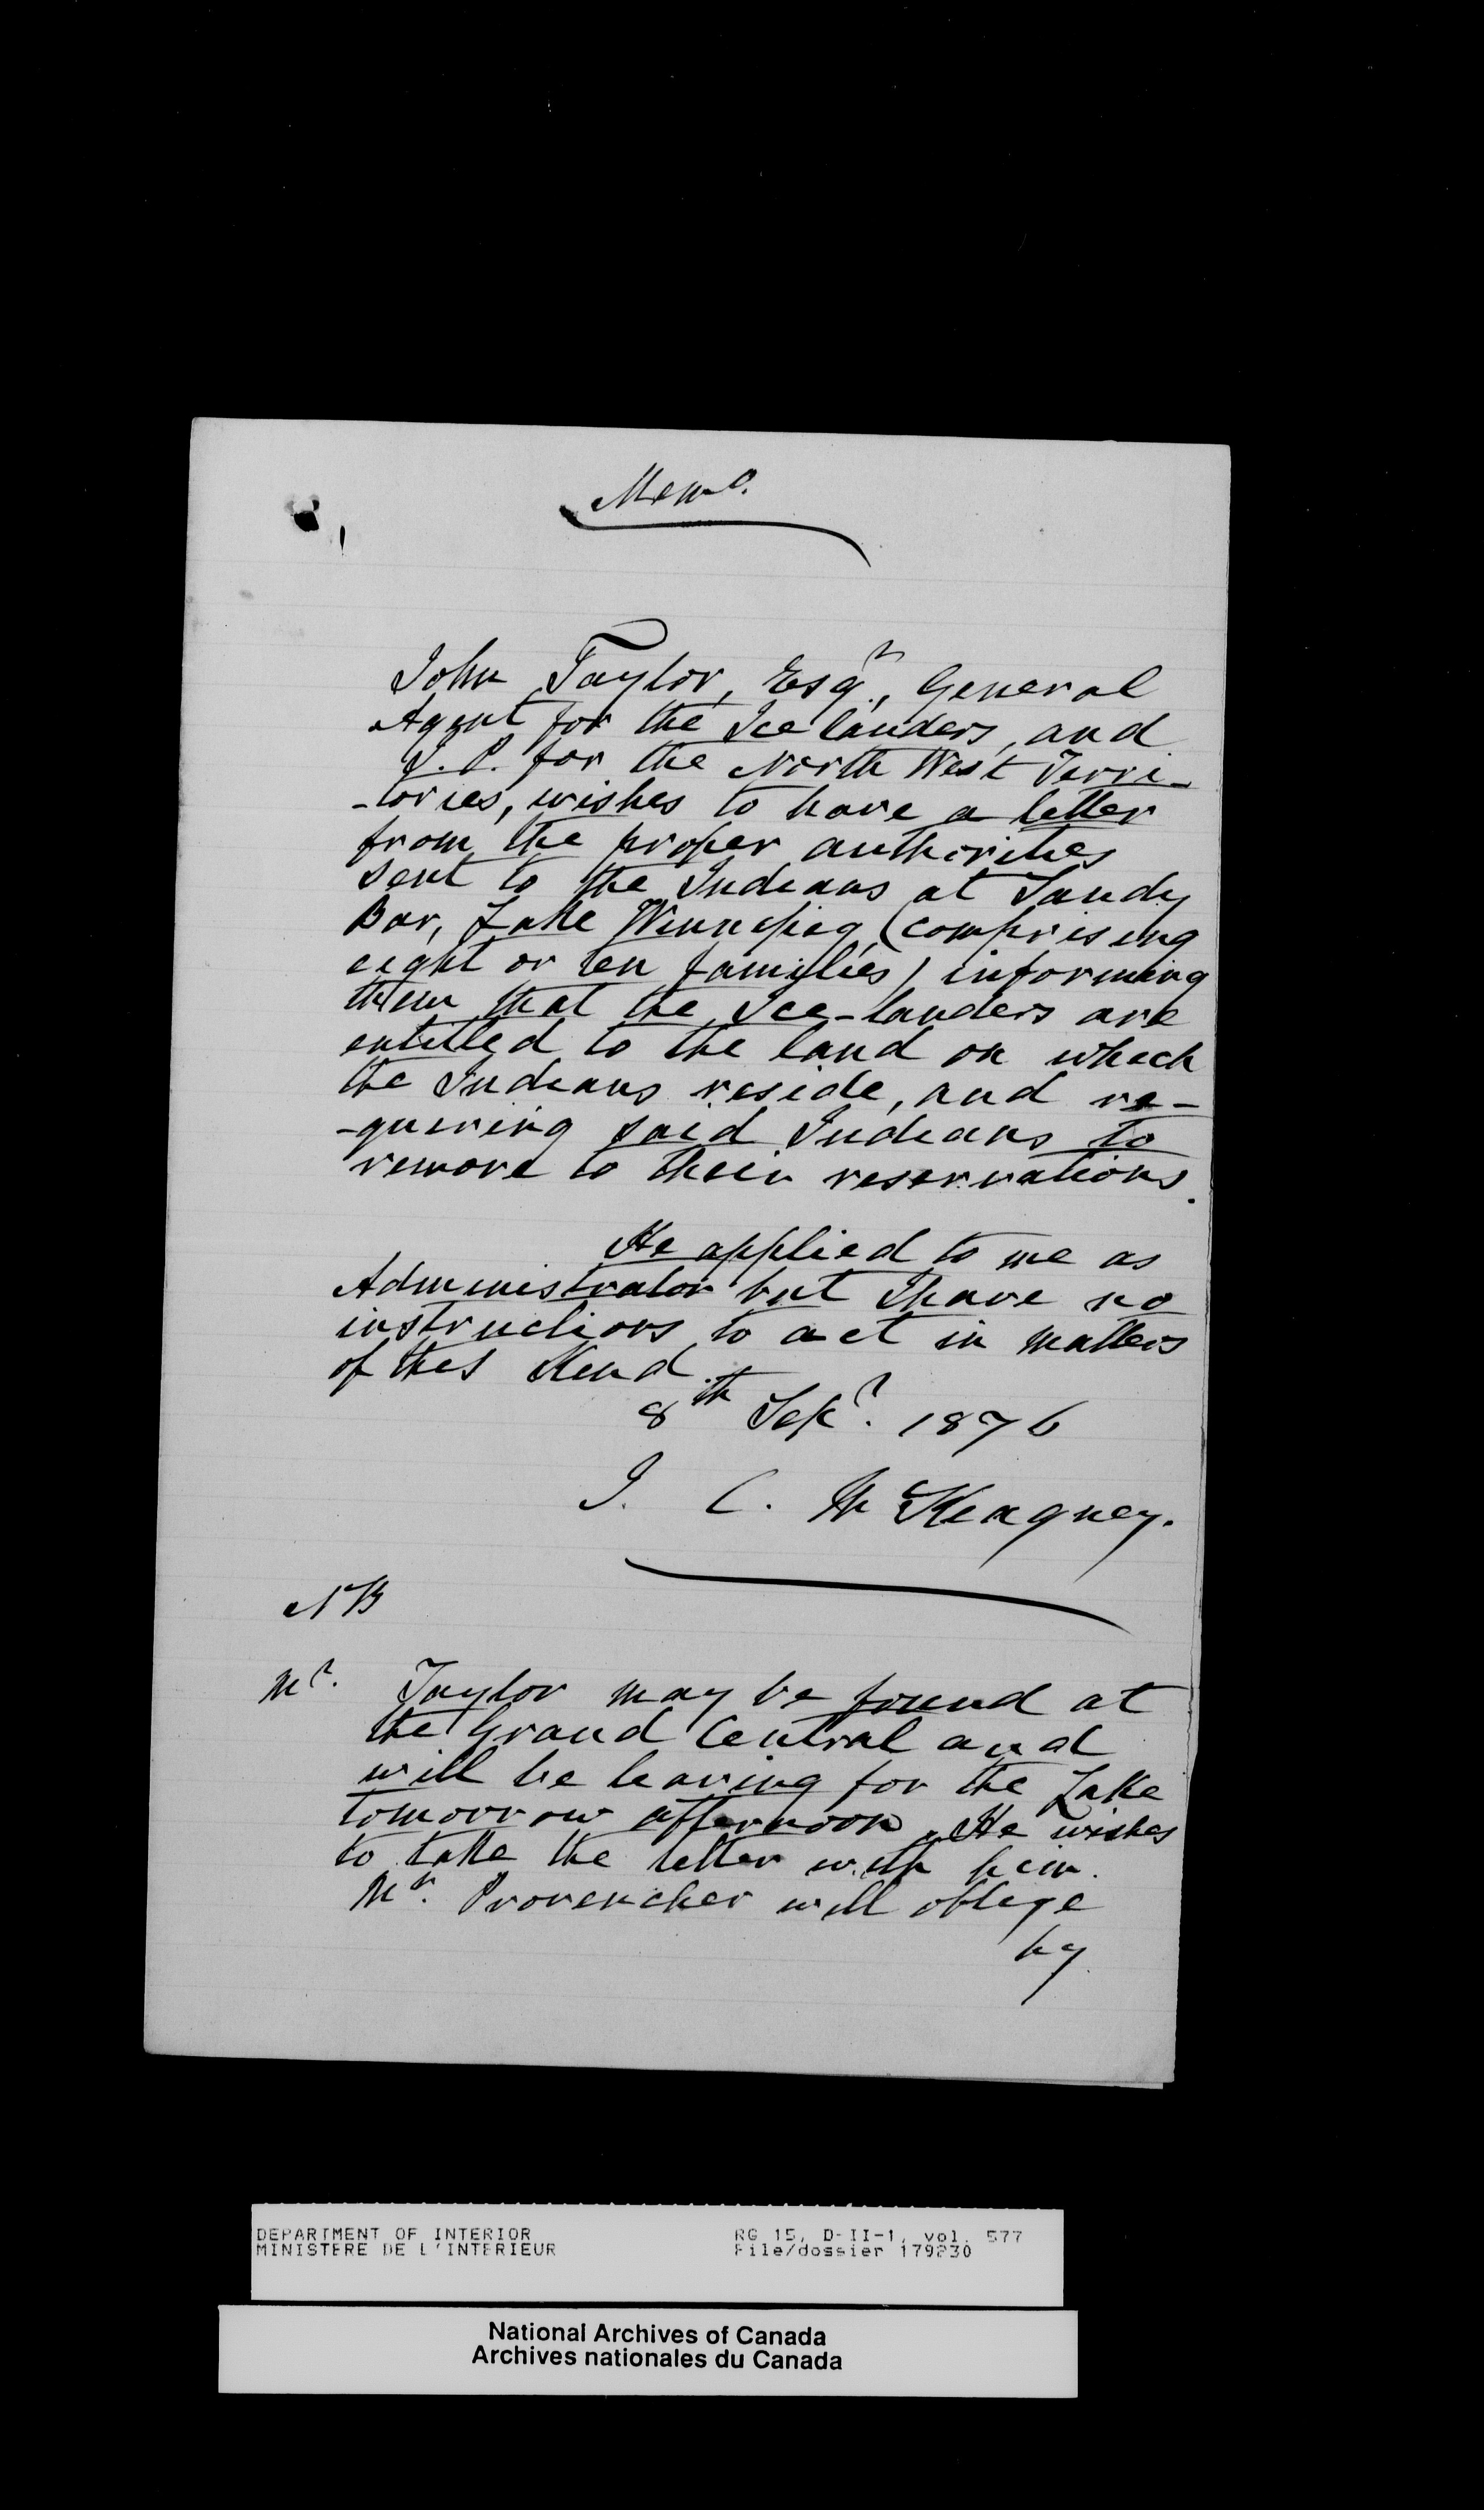 Memo.
John Taylor, Esqr., General
Agent for the Icelanders, and
J. P. for the North West Terri-
-tories, wishes to have a letter
from the proper authorities
sent to the Indians at Sandy
Bar, Lake Winnepeg, (comprising
eight or ten families) informing
them that the Ice-landers are
entitled to the land on which
the Indians reside, and re-
-quering said Indians to
remove to their reservations.
He applied to me as
Administrator but I have no
instructions to act in matters
of this Kind.
8th Sepr. 1876
J. C. McKeagney.
NB
Mr. Taylor may be found at
the Grand Central and
will be leaving for the Lake
tomorrow afternoon. He wishes
to take the letter with him.
Mr. Provencher will oblige
by
DEPARTMENT OF INTERIOR RG 15, D-II-1, vol. 577
MINISTERE DE L'INTERIEUR File/dossier 179230
National Archives of Canada
Archives nationales du Canada